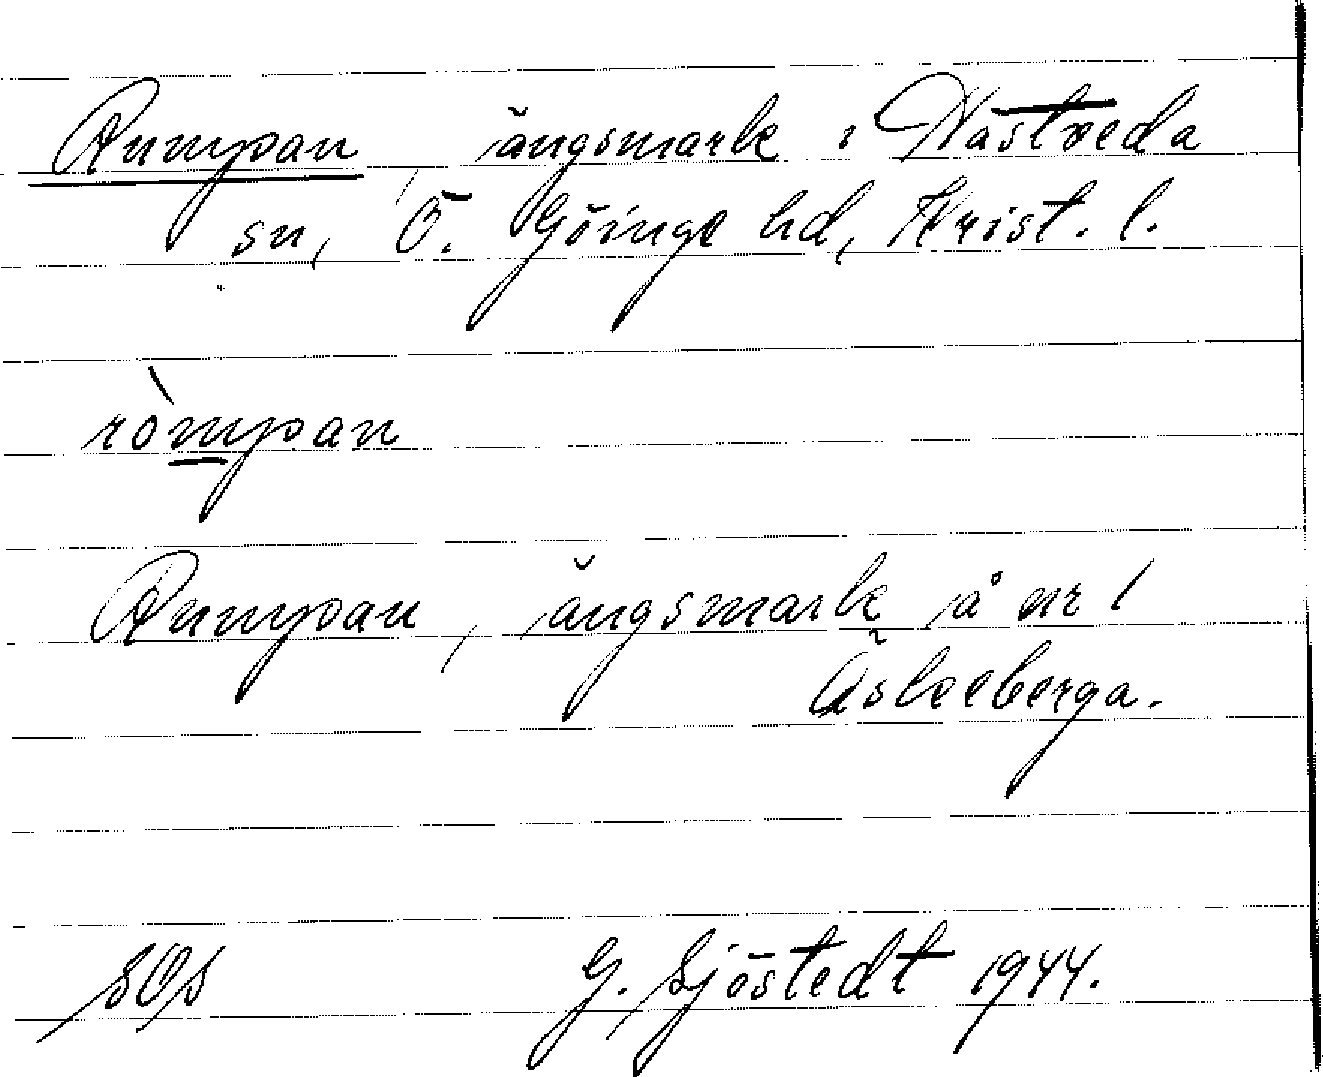 Rumpan ängsmark i Nästveda
sn, Ö. Göinge hd, Krist. l.
ròmpan
Rumpan, ängsmark å nr 1
Äskeberga.
SOS G. Sjöstedt 1944.